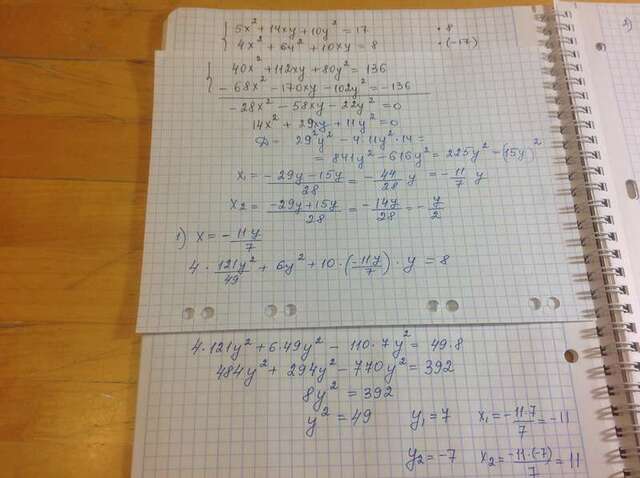 { 5x² + 14xy + 10y² = 17 · 8
4x² + 6y² + 10xy = 8 · (-17)
{ 40x² + 112xy + 80y² = 136
-68x² - 170xy - 102y² = -136
-28x² - 58xy - 22y² = 0
14x² + 29xy + 11y² = 0
D = 29²y² - 4·11y²·14 =
= 841y² - 616y² = 225y² - (15y)²
x₁ = (-29y - 15y)/28 = -44/28 y = -11/7 y
x₂ = (-29y + 15y)/28 = -14y/28 = -y/2
1) x = -11y/7
4 · 121y²/49 + 6y² + 10 · (-11y/7) · y = 8
4·121y² + 6·49y² - 110·7y² = 49·8
484y² + 294y² - 770y² = 392
8y² = 392
y² = 49 y₁ = 7 x₁ = -11·7/7 = -11
y₂ = -7 x₂ = -11·(-7)/7 = 11
2)